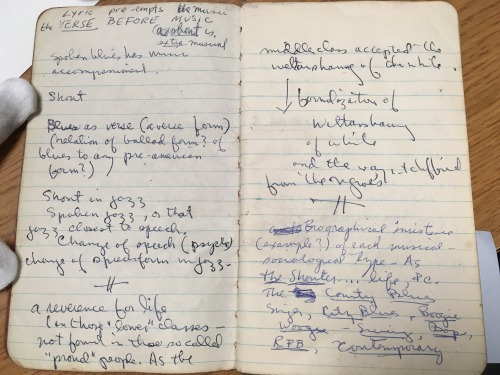 LYRIC pre-empts the music
the VERSE BEFORE MUSIC
is
extra musical
Spoken blues has music
accompaniment.
Shout
Blues as verse (a verse form)
(relation of ballad form? of
blues to any pre-american
form?)
Shout in jazz
Spoken jazz, is that
jazz closest to speech.
Change of speech (psyche)
change of speech form in jazz-
a reverence for life
(in those "lower" classes -
not found in those so called
"proud" people. As the
middle class accepted the
of the white.
of
of white
and the way it differed
from the negroes'
Biographical
(example?) of each musical-
sociological type - As
the Shouter... life, P.C.
The Country Blues
Singer, City Blues, Boogie
Woogie - Swing, Bop,
R&B, Contemporary